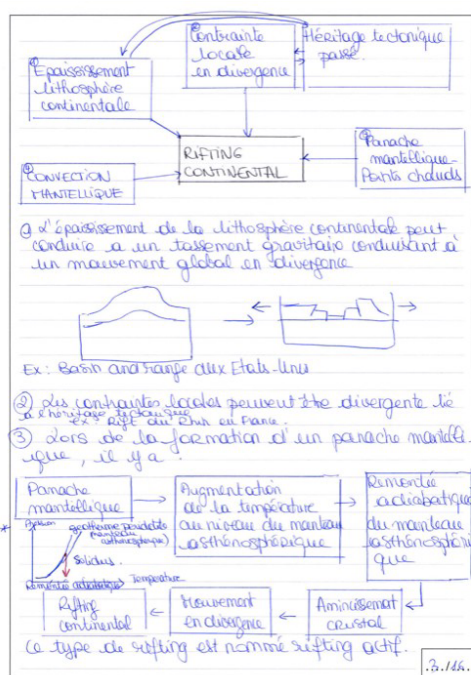 ① Epaississement
lithosphère
continentale
② Contrainte
locale
en divergence
Héritage tectonique
passé.
RIFTING
CONTINENTAL
Panache
mantellique-
Points chauds
CONVECTION
MANTELLIQUE
① L'épaississement de la lithosphère continentale peut
conduire a un tassement gravitaire conduisant à
un mouvement global en divergence
Ex: Basin and range aux Etats-Unis
② Les contraintes locales peuvent être divergente lié
à l'héritage tectonique
ex: Rift du Rhin en France.
③ Lors de la formation d'un panache mantelli-
que, il y a:
Panache
mantellique
Augmentation
de la température
au niveau du manteau
asthénosphérique
Remontée
adiabatique
du manteau
asthénosphéri
que
*
géotherme
Solidus
Remontée adiabatique
Température
Amincissement
crustal
Mouvement
en divergence
Rifting
continental
Ce type de rifting est nommé rifting actif.
.3./16.